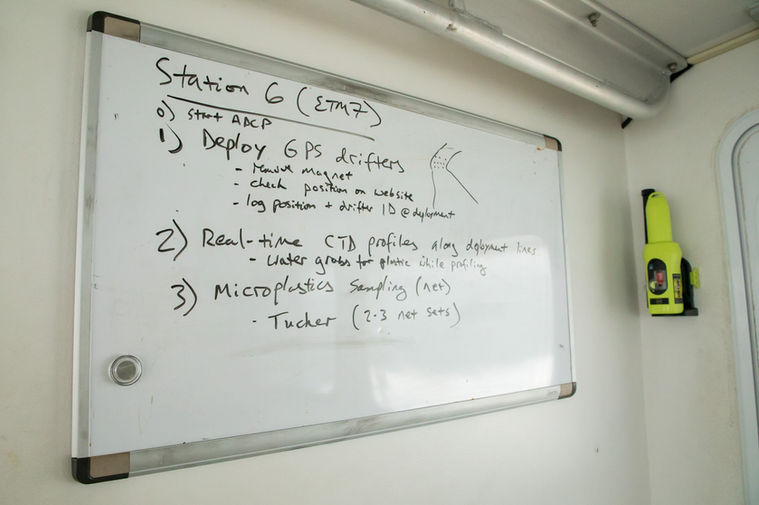 Station 6 (ETM7)
0) Start ADCP
1) Deploy GPS drifters
- remove magnet
- check position on website
- log position + drifter ID @ deployment
2) Real-time CTD profiles along deployment lines
- Water grabs for plastic while profiling
3) Microplastics Sampling (net)
- Tucker (2-3 net sets)